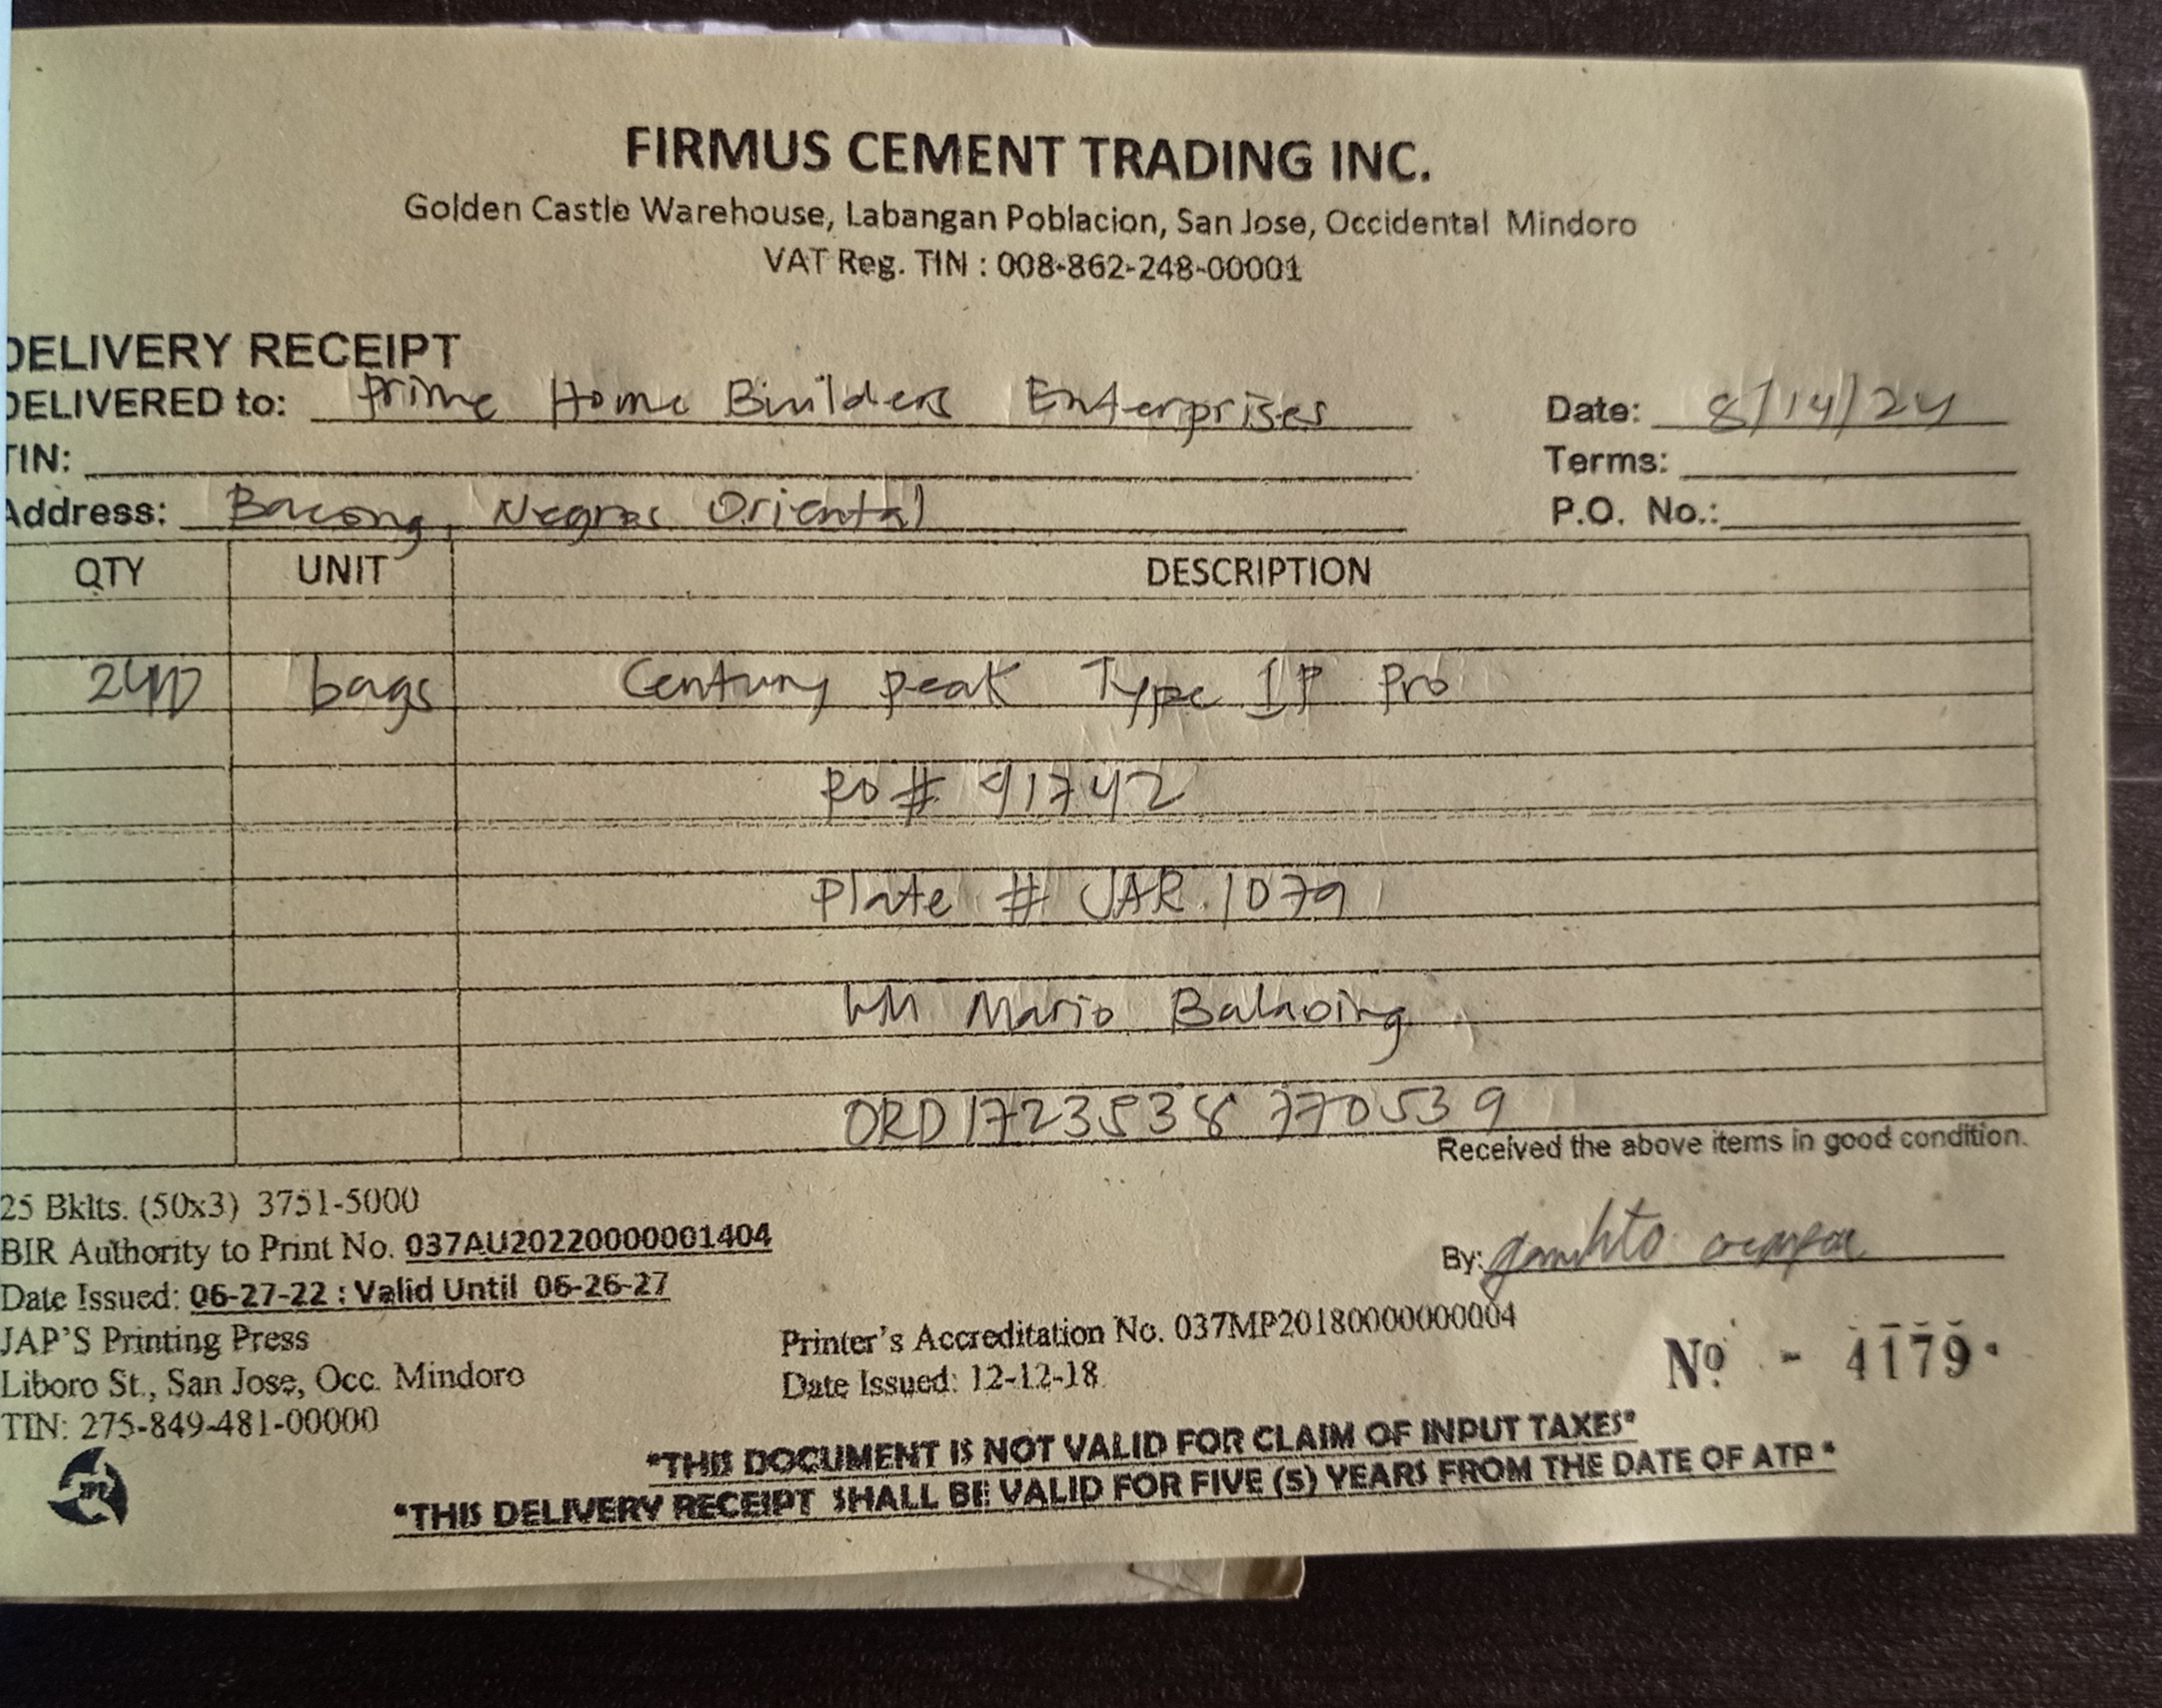 FIRMUS CEMENT TRADING INC.
Golden Castle Warehouse, Labangan Poblacion, San Jose, Occidental Mindoro
VAT Reg. TIN : 008-862-248-00001
DELIVERY RECEIPT
DELIVERED to: Prime Home Builders Enterprises Date: 8/14/24
TIN: Terms:
Address: Bacong, Negros Oriental P.O. No.:
QTY UNIT DESCRIPTION
bags Century peak Type 1P Pro
# 91742
Plate # JAR 1079
Mario Balaoing
ORD1723538770539
Received the above items in good condition.
25 Bklts. (50x3) 3751-5000
BIR Authority to Print No. 037AU20220000001404
By:
Date Issued: 06-27-22 : Valid Until 06-26-27
JAP'S Printing Press Printer's Accreditation No. 037MP20180000000004
Liboro St., San Jose, Occ. Mindoro Date Issued: 12-12-18 Nº - 4179
TIN: 275-849-481-00000
"THIS DOCUMENT IS NOT VALID FOR CLAIM OF INPUT TAXES"
"THIS DELIVERY RECEIPT SHALL BE VALID FOR FIVE (5) YEARS FROM THE DATE OF ATP"